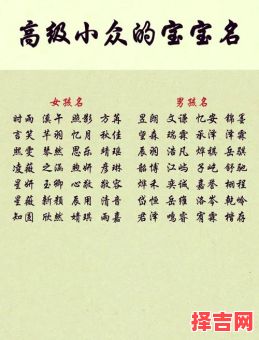 高级小众的宝宝名
女孩名 男孩名
时雨 溪午 照影 方苒 昱朗 文谦 忆安 锦苓
言笑 羊羽 忆月 秋佳 望森 瑞霖 承泽 泽霖
熙雯 琴然 思乐 靖瑶 辰羽 浩凡 烨祺 岳骐
凌薇 之涵 煦妍 彦琳 韶博 江屿 子屹 舒驰
星妍 玉卿 心敬 敬容 烨禾 奕诚 嘉誉 栩程
星薇 新颜 辰用 清音 岱恒 岳维 洛岑 乾岭
知圆 欣然 婧琪 雨嘉 君泽 鸣睿 宥霖 楷存
择吉网
zejiwang.com